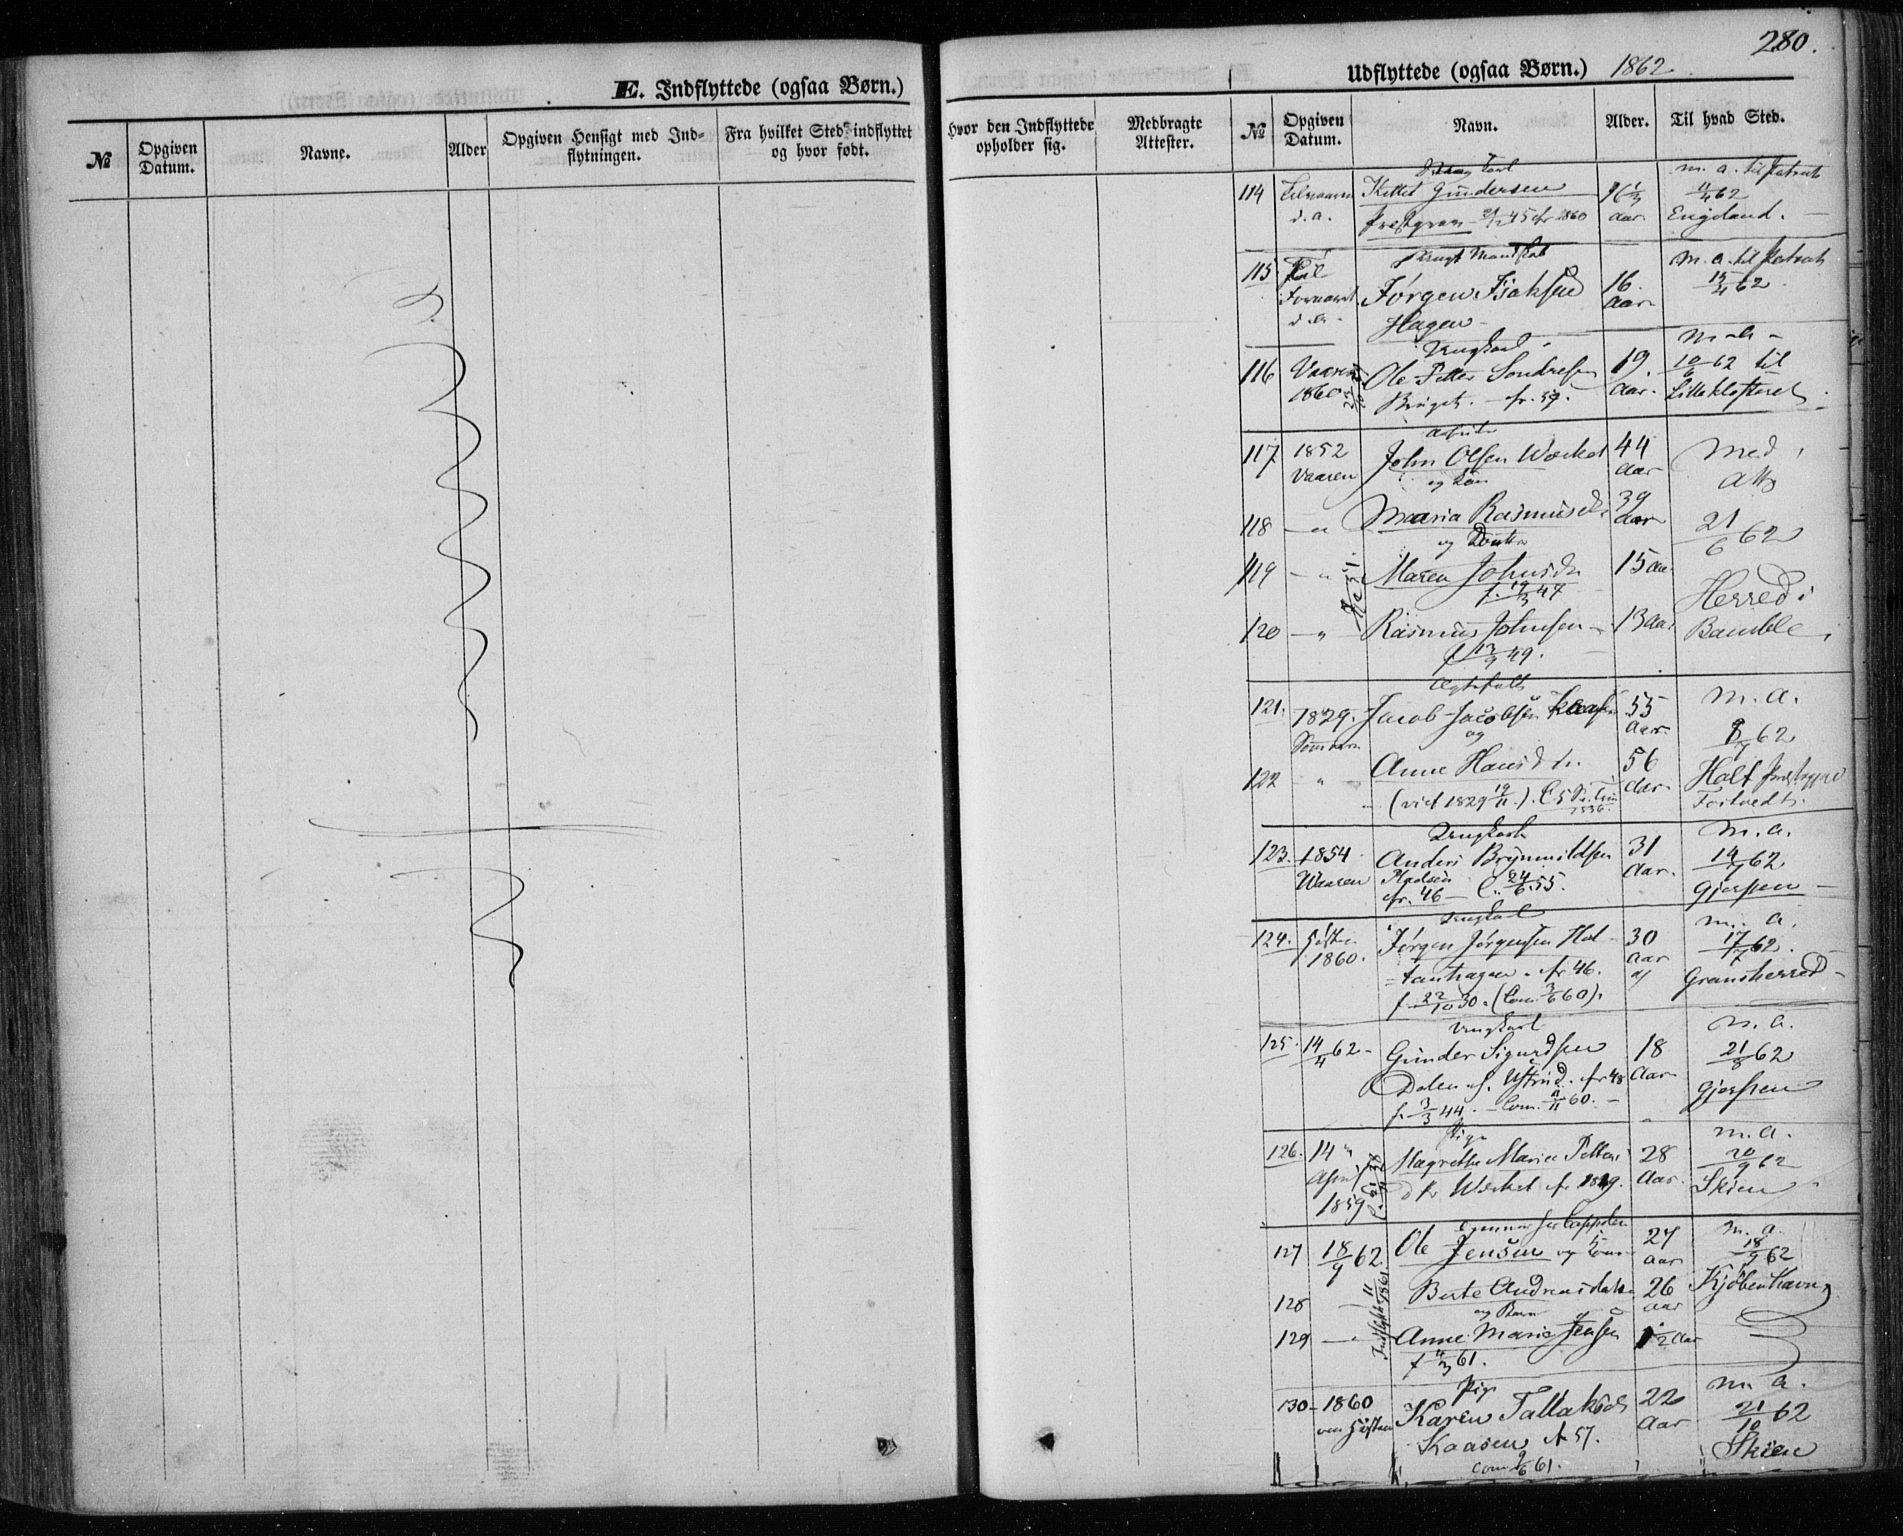 280.
E. Indflyttede (ogsaa Børn.)
№
Opgiven Datum.
Navne.
Alder
Opgiven Hensigt med Indflytningen.
Fra hvilket Sted indflyttet og hvor født.
Hvor den Indflyttede opholder sig.
Medbragte Attester.
Udflyttede (ogsaa Børn.) 1862
№
Opgiven Datum.
Navn.
Alder.
Til hvad Sted.
114
d. a.
Kittel Gundersen
45 cfr 1860
16
aar
m. a. til
62
England.
115
d. a.
Jørgen Isaksen
Hagen
16.
aar
m. a. til
15/4 62
116
Vaaren
1860
Ungkarl
Ole Petter Sondresen
cfr. 59.
19.
Aar.
m. a.
10/6 62 til
117
1852
Vaaren
John Olsen Værket
og Kone
44
aar
Med
att
118
Maria Rasmusd.
og Dattre
39
aar
21/6 62
119
Maren Johnsdr
f. 19/3 47
15 aar
Herred i
120
Rasmus Johnsen
f. 13/9 49.
13 aar
Bamble
121.
1829.
Ægtefolk
Jacob Jacobsen Kaasen
og
55
Aar
m. a.
8/7 62
122
Anne Hansdtr.
(viet 1829 19/11.)
56
aar
Holt Præstegjeld
123.
1854
Vaaren
Ungkarl
Anders Brynnildsen
Pladsen
cfr. 46 — C. 24/6 55.
31
Aar.
m. a.
14/7 62
Gjerpen
124.
Høsten
1860.
Ungkarl
Jørgen Jørgensen Holtanhagen. cfr 46.
f. 22/10 30. (Com. 3/6 60).
30
Aar
m. a.
17/7 62.
Gransherred
125.
14/4 62
Ungkarl
Gunder Sigurdsen
Dalen cfr 48
f. 3/3 44. Com. 60.
18
Aar
m. a.
21/8 62
Gjerpen
126.
14
April
1859
Pige
Magrethe Marie Petters
dtr Værket
28
Aar.
m. a.
20/9 62
Skien
127
18/9 62
Ole Jensen og Kone
27
aar
m. a.
18/9 62
128
Berte Andreasdatter
og Barn
26
aar
Kjøbenhavn
129
Anne Marie Jensen
f. 4/3 61.
1 1/2 aar
130
1860
om Høsten
Pige
Karen Tallaksd.
Kaasen cfr 57.
com. 9/6 61.
22
Aar
m. a.
21/10 62
Skien